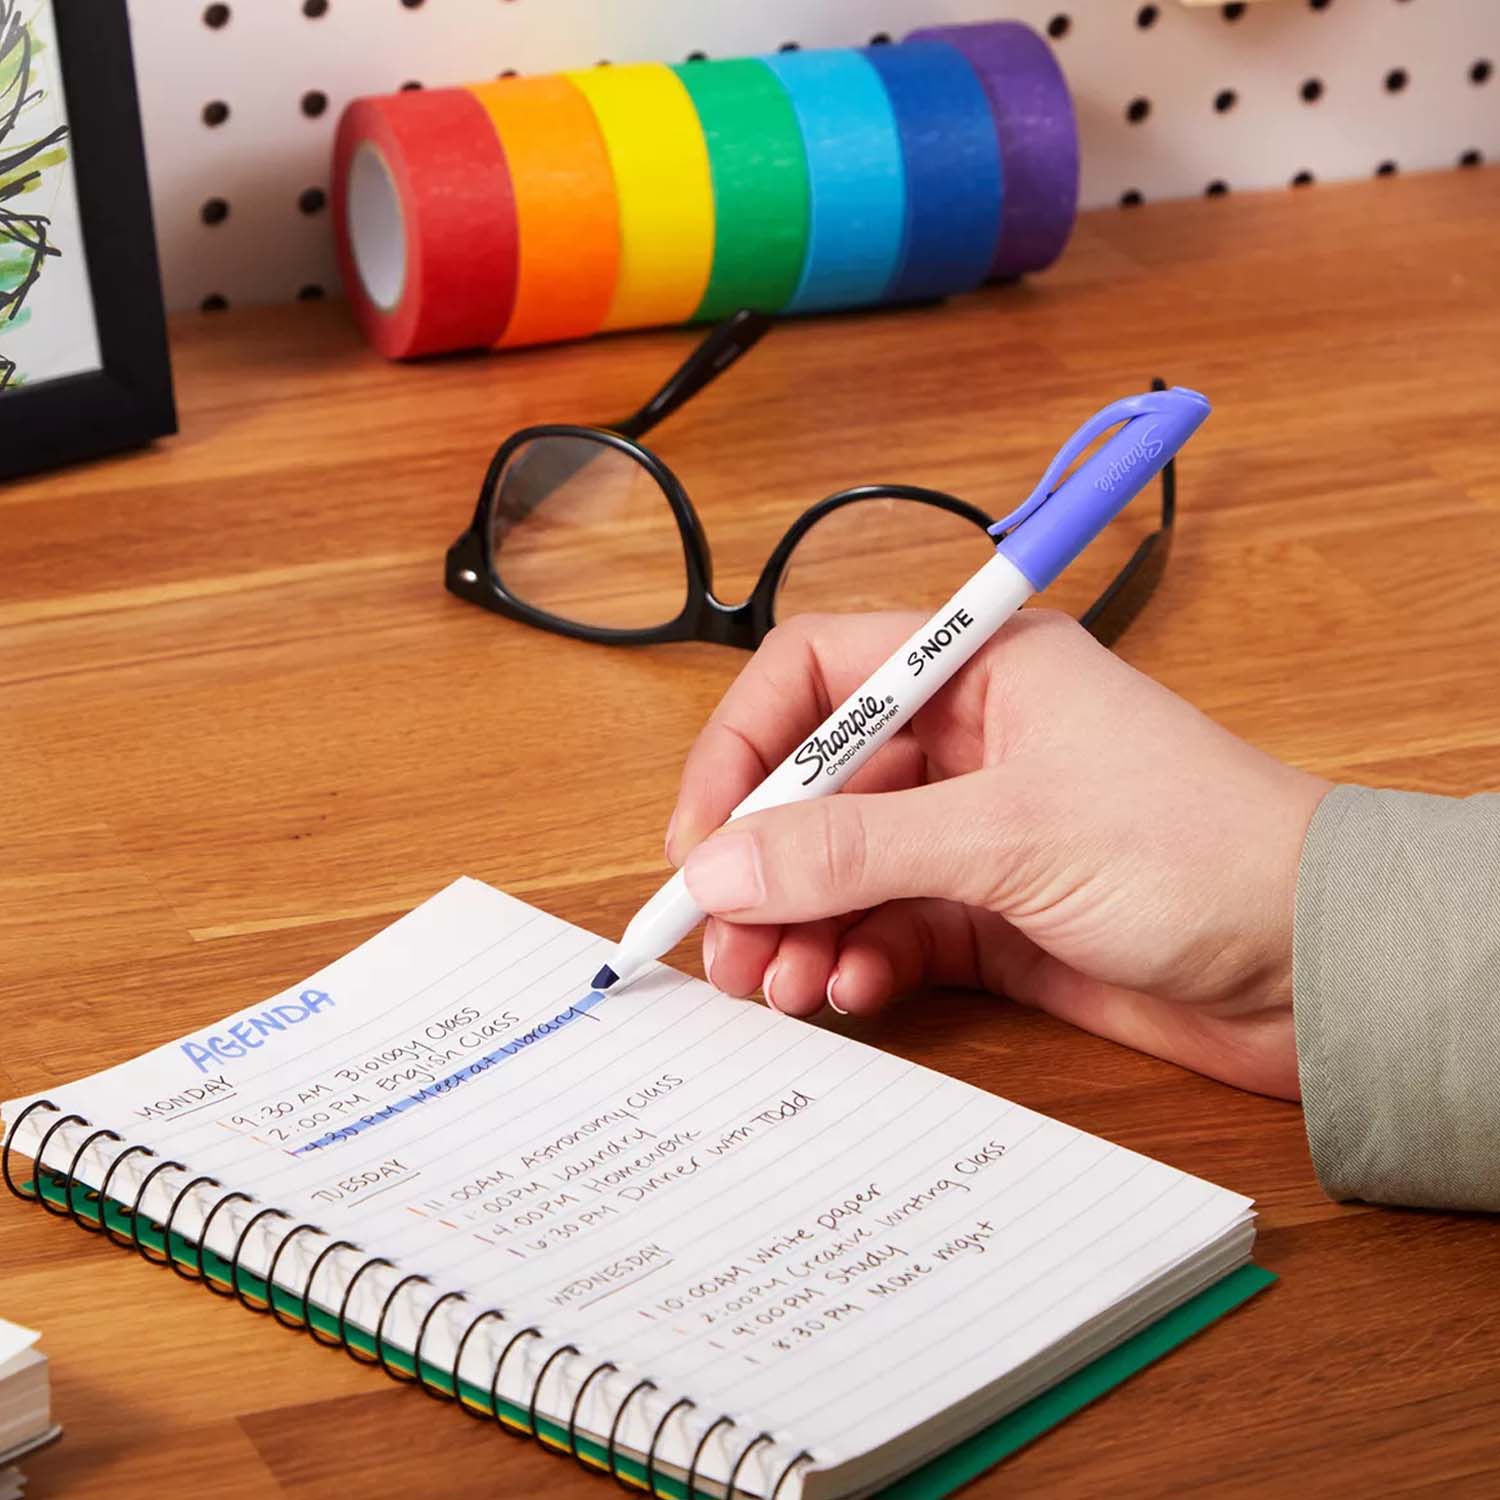 Sharpie
S·NOTE
Sharpie®
Creative Marker
AGENDA
MONDAY
9:30 AM Biology Class
2:00 PM English Class
4:30 PM Meet at Library
TUESDAY
11:00AM Astronomy Class
1:00PM Laundry
4:00PM Homework
6:30 PM Dinner with Todd
WEDNESDAY
10:00AM Write paper
2:00PM Creative Writing Class
4:00PM Study
8:30 PM Movie night